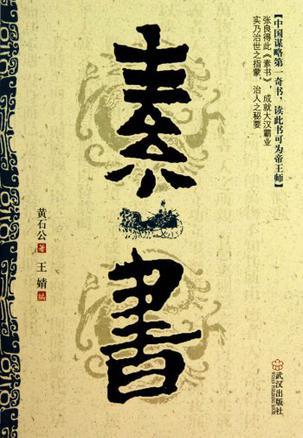 【中国谋略第一奇书，读此书可为帝王师】
张良得此《素书》，成就大汉霸业
实乃治世之指蒙，治人之秘要
素書
黄石公 著
王婧 编
武汉出版社